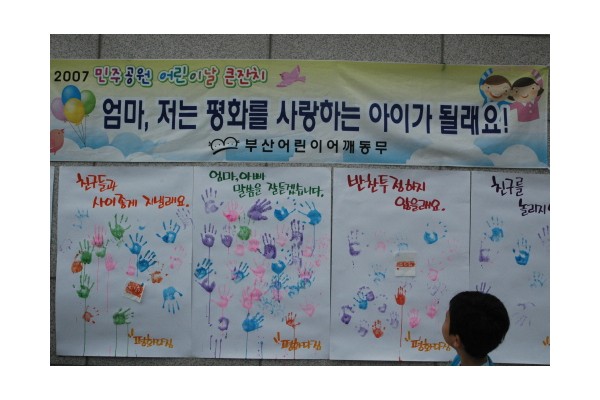 2007 민주공원 어린이날 큰잔치
엄마, 저는 평화를 사랑하는 아이가 될래요!
부산어린이어깨동무
친구들과
사이좋게 지낼래요.
엄마, 아빠
말씀을 잘듣겠습니다.
반찬투정하지
않을래요.
친구를
놀리지
평화다짐
평화다짐
평화다짐